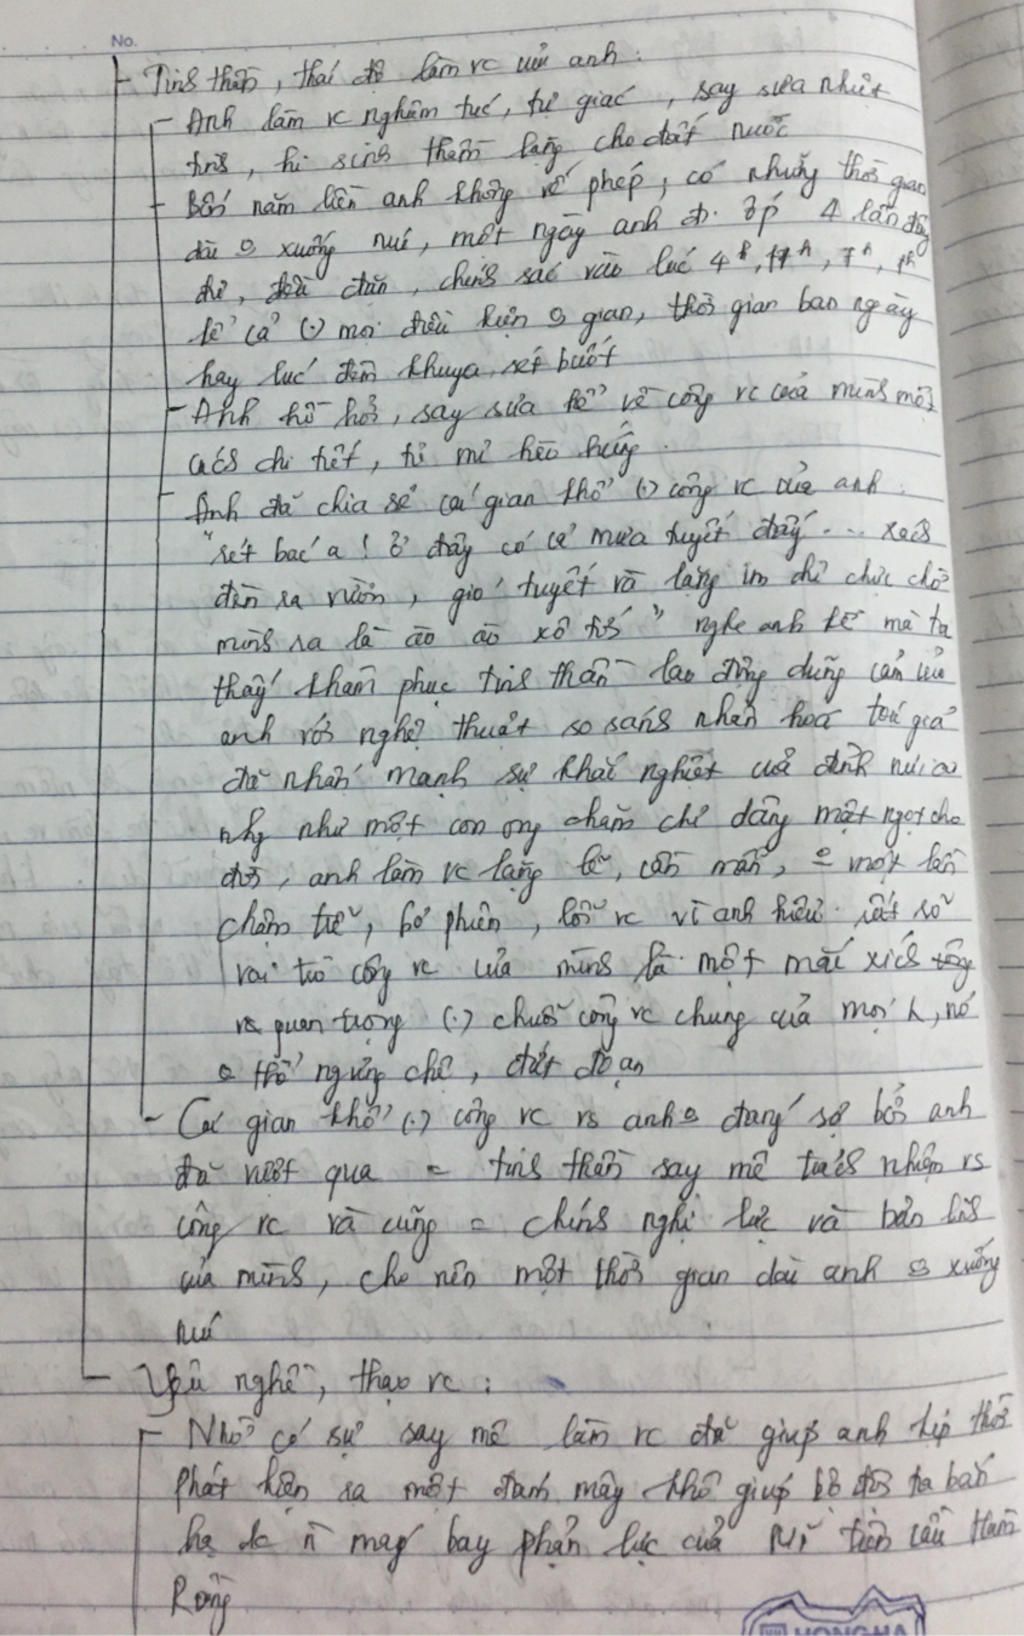 No.
- Tinh thần, thái độ làm vc của anh:
- Anh làm vc nghiêm túc, tự giác, say sưa nhiệt
tình, hi sinh thầm lặng cho đất nước
- Bốn năm liền anh không về phép, có những thời gian
dài o xuống núi, một ngày anh đi ốp 4 lần đầy
đủ, đều đặn, chính xác vào lúc 4h, 11h, 7h, 1h
kể cả (.) mọi điều kiện o gian, thời gian ban ngày
hay lúc đêm khuya, rét buốt
- Anh hồ hởi, say sưa kể về công vc của mình một
cách chi tiết, tỉ mỉ hào hứng.
- Anh đã chia sẻ cái gian khổ (.) công vc của anh:
"rét bác ạ! Ở đây có cả mưa tuyết đấy... xách
đèn ra vườn, gió tuyết và lặng im chỉ chực chờ
mình ra là ào ào xô tới" nghe anh kể mà ta
thấy khâm phục tinh thần lao động dũng cảm của
anh với nghệ thuật so sánh nhân hoá tác giả
đã nhấn mạnh sự khắc nghiệt của đỉnh núi
như một con ong chăm chỉ dâng mật ngọt cho
đời, anh làm vc lặng lẽ, cần mẫn, o một lần
chậm trễ, bỏ phiên, lỗi vc vì anh hiểu rất rõ
vai trò công vc của mình là một mắt xích
quan trọng (.) chuỗi công vc chung của mọi, nó
o thể ngừng chê, đứt đoạn
- Cái gian khổ (.) công vc vs anh o đáng sợ bởi anh
đã vượt qua = tinh thần say mê trách nhiệm vs
công vc và cũng = chính nghị lực và bản lĩnh
của mình, cho nên một thời gian dài anh o xuống
núi
- Yêu nghề, thạo vc:
- Nhờ có sự say mê làm vc đã giúp anh kịp thời
phát hiện ra một đám mây khô giúp bộ đội ta bắn
hạ đc n máy bay phản lực của Mĩ trên cầu Hàm
Rồng
HONGHA